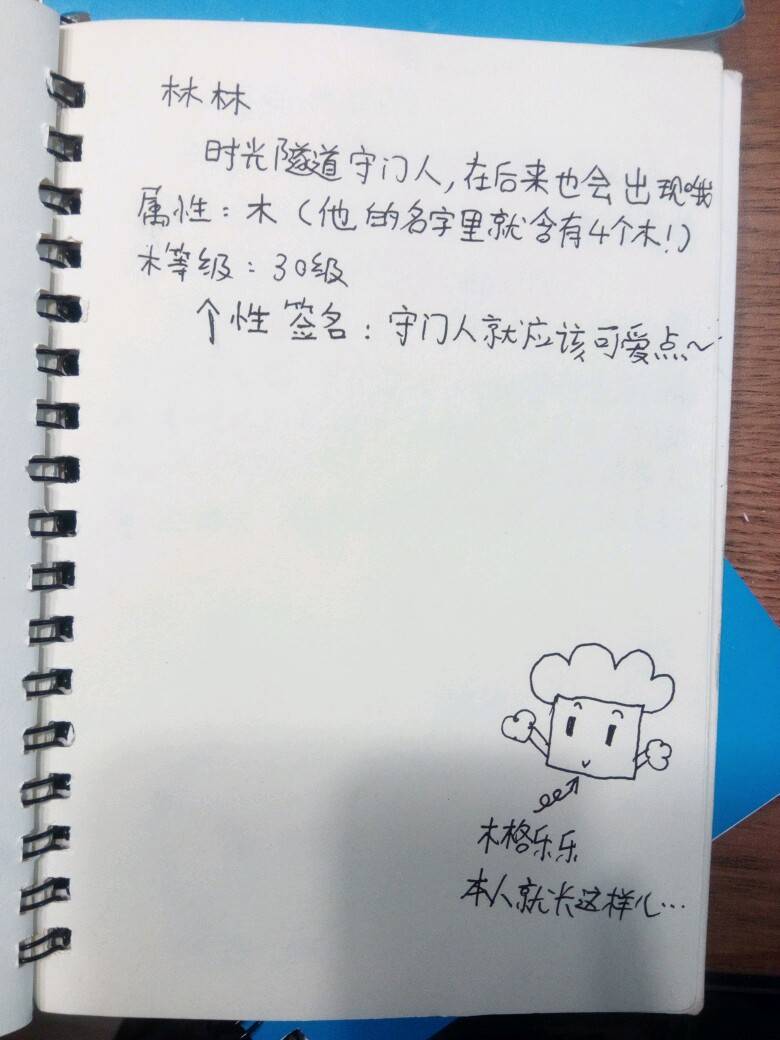 林林
时光隧道守门人,在后来也会出现哦
属性:木(他的名字里就含有4个木!)
木等级:30级
个性签名:守门人就应该可爱点~
木格乐乐
本人就长这样儿…